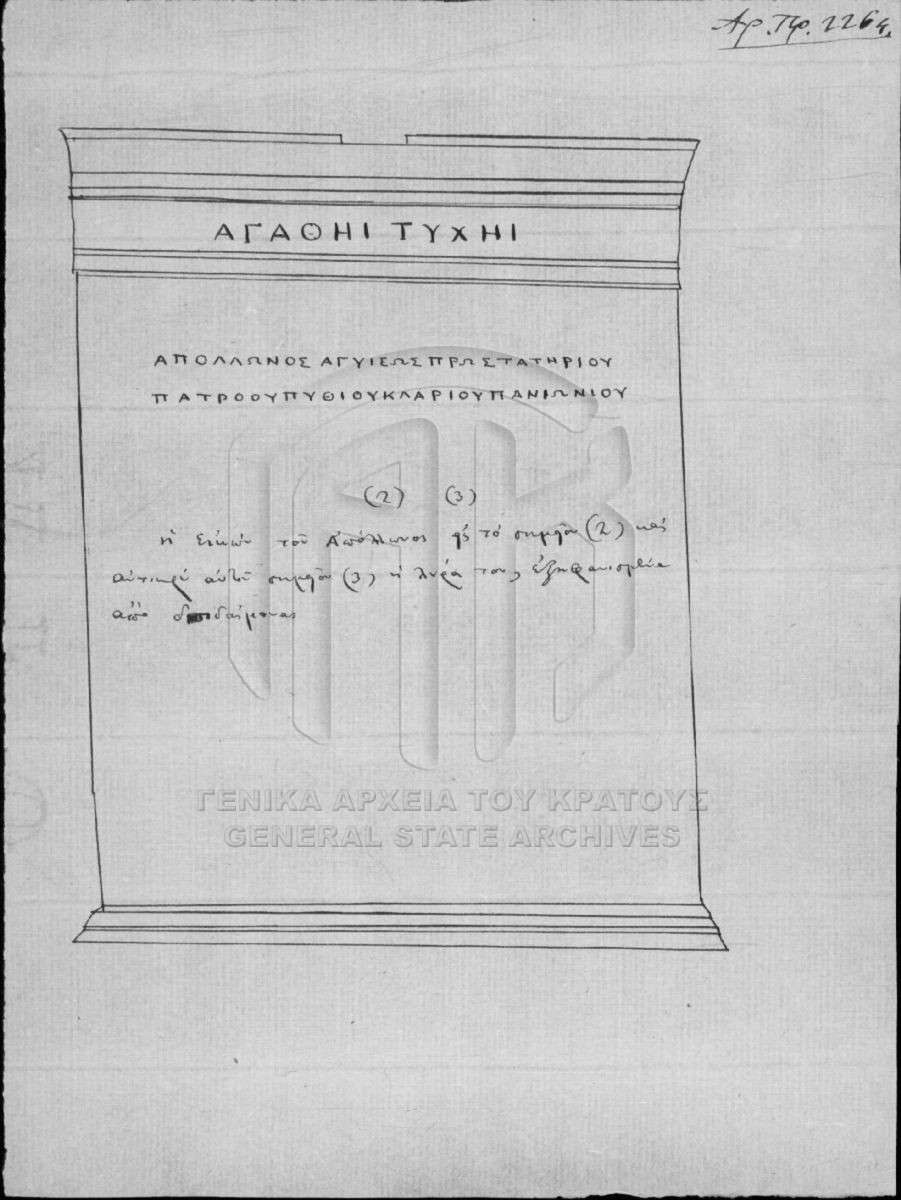 Αρ. Πρ. 226
ΑΓΑΘΗΙ ΤΥΧΗΙ
ΑΠΟΛΛΩΝΟΣ ΑΓΥΙΕΩΣ ΠΡΩΣΤΑΤΗΡΙΟΥ
ΠΑΤΡΟΟΥΠΥΘΙΟΥΚΛΑΡΙΟΥΠΑΝΙΩΝΙΟΥ
(2) (3)
ἡ Εἰκὼν τοῦ Ἀπόλλωνος εἰς τὸ σημεῖον (2) καὶ
ἀντικρὺ αὐτοῦ σημεῖον (3) ἡ λύρα του, ἐξηφανισμένα
ἀπὸ
ΓΕΝΙΚΑ ΑΡΧΕΙΑ ΤΟΥ ΚΡΑΤΟΥΣ
GENERAL STATE ARCHIVES